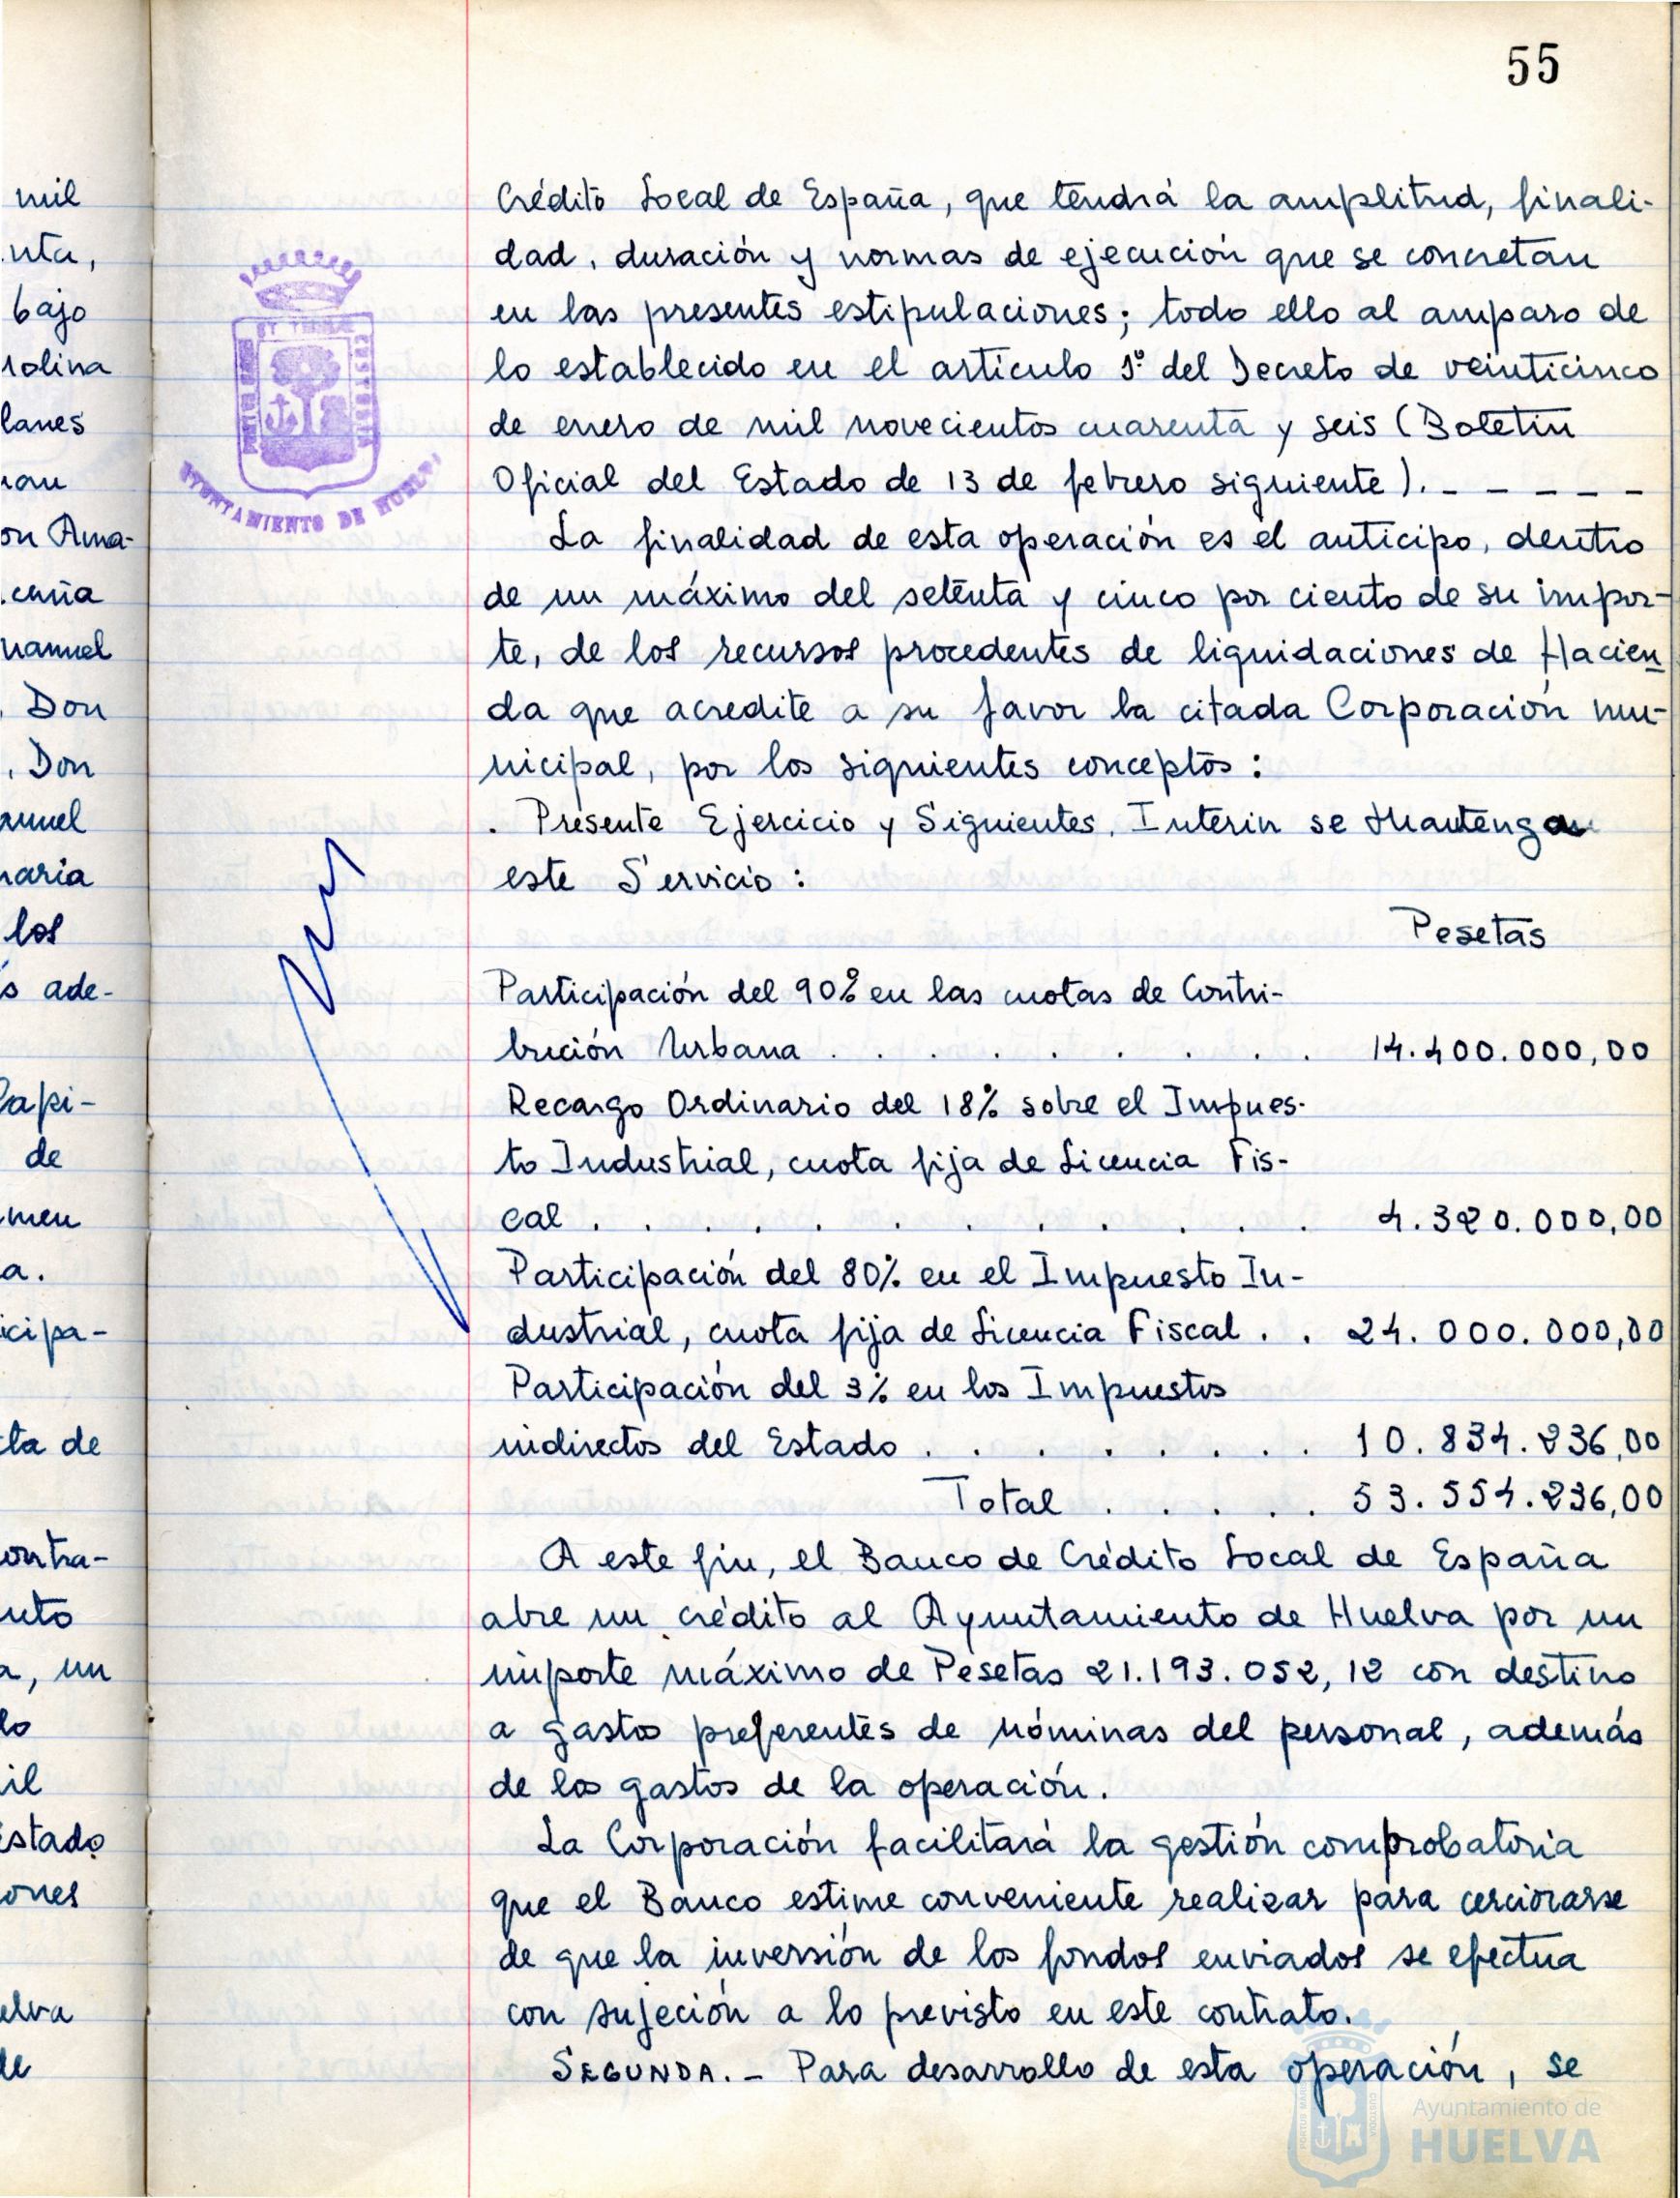 55
Crédito Local de España, que tendrá la amplitud, finali-
dad, duración y normas de ejecución que se concretan
en las presentes estipulaciones; todo ello al amparo de
lo establecido en el artículo 1º del Decreto de veinticinco
de enero de mil novecientos cuarenta y seis (Boletín
Oficial del Estado de 13 de febrero siguiente). - - - - -
La finalidad de esta operación es el anticipo, dentro
de un máximo del setenta y cinco por ciento de su impor-
te, de los recursos procedentes de liquidaciones de Hacien
da que acredite a su favor la citada Corporación mu-
nicipal, por los siguientes conceptos:
. Presente Ejercicio y Siguientes, Interin se Mantenga
este Servicio:
Pesetas
Participación del 90% en las cuotas de Contri-
bución Urbana . . . . . . . . . 14.400.000,00
Recargo Ordinario del 18% sobre el Impues-
to Industrial, cuota fija de Licencia Fis-
cal . . . . . . . . . . . . 4.320.000,00
Participación del 80% en el Impuesto In-
dustrial, cuota fija de Licencia Fiscal . . 24.000.000,00
Participación del 3% en los Impuestos
indirectos del Estado . . . . . . . 10.834.236,00
Total . . . . . 53.554.236,00
A este fin, el Banco de Crédito Local de España
abre un crédito al Ayuntamiento de Huelva por un
importe máximo de Pesetas 21.193.052,12 con destino
a gastos preferentes de nóminas del personal, además
de los gastos de la operación.
La Corporación facilitará la gestión comprobatoria
que el Banco estime conveniente realizar para cerciorarse
de que la inversión de los fondos enviados se efectua
con sujeción a lo previsto en este contrato.
SEGUNDA. - Para desarrollo de esta operación, se
AYUNTAMIENTO DE HUELVA
mil
bajo
lanes
Don
, Don
los
s ade-
de
a.
ta de
, un
Ayuntamiento de
HUELVA